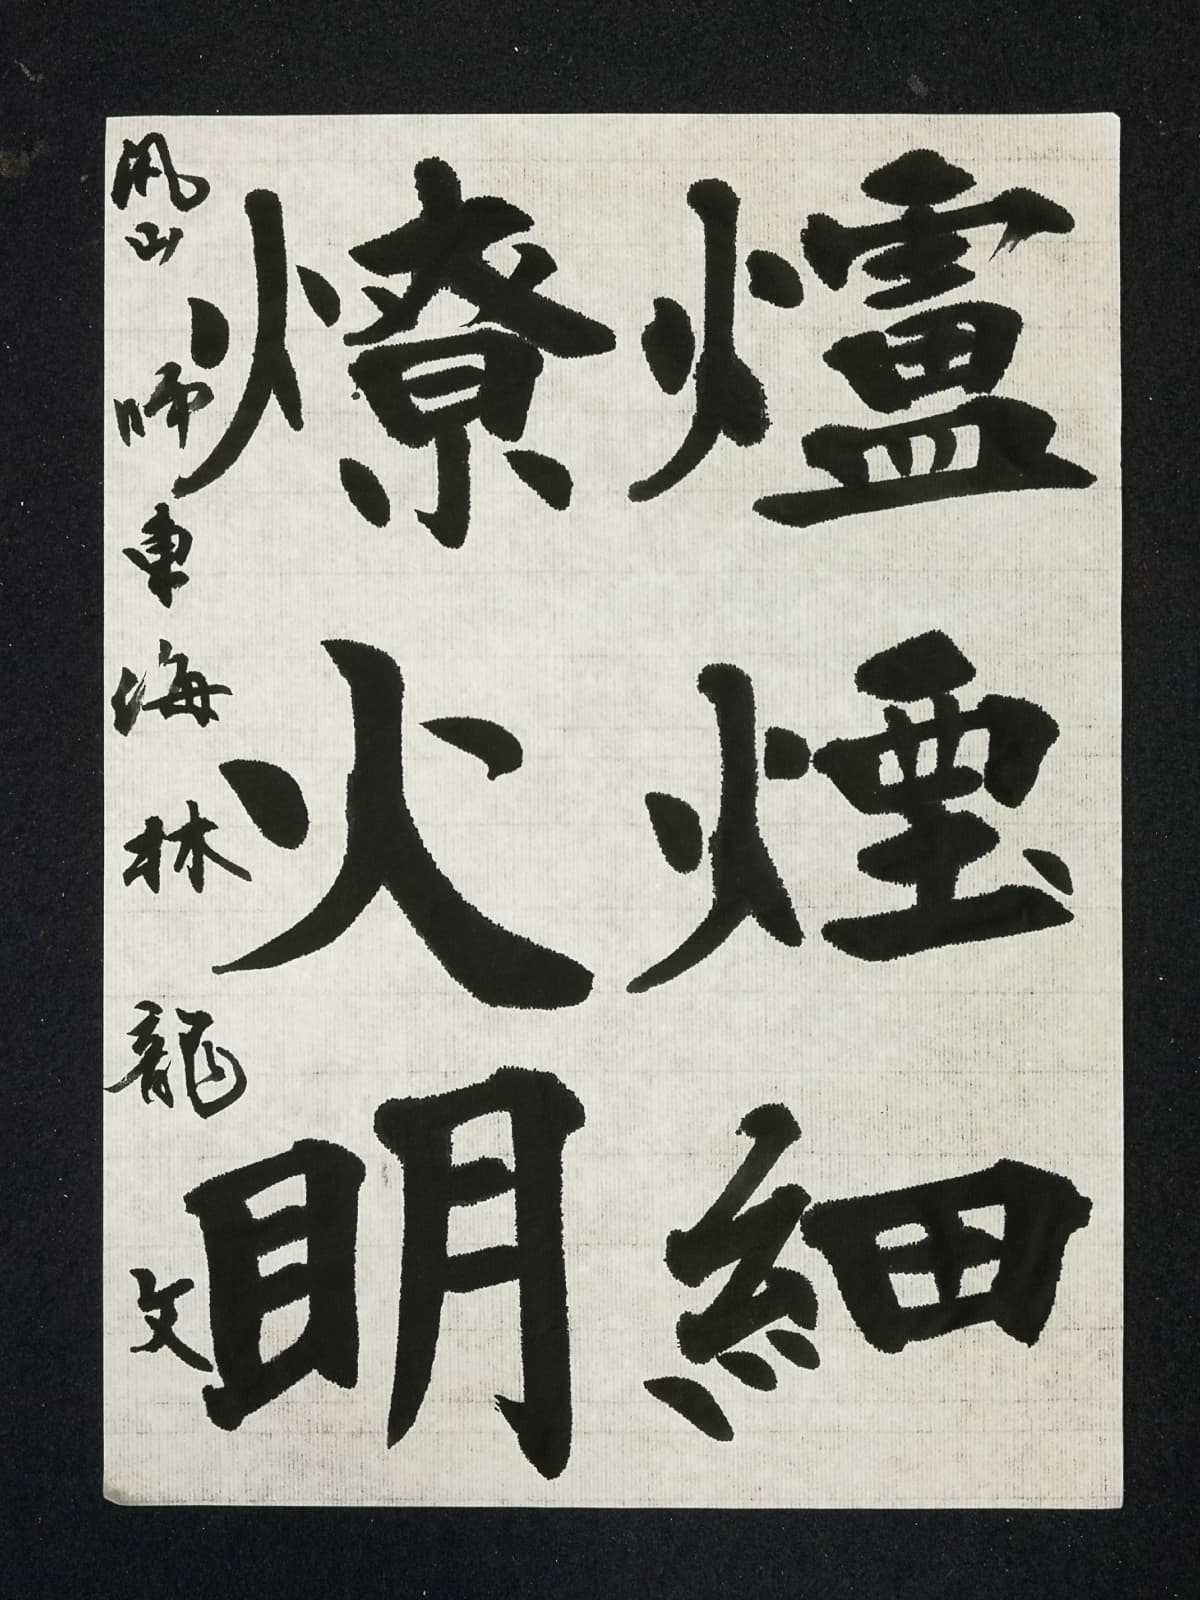 爐煙細
燎火明
鳳山 師東 海林 龍文